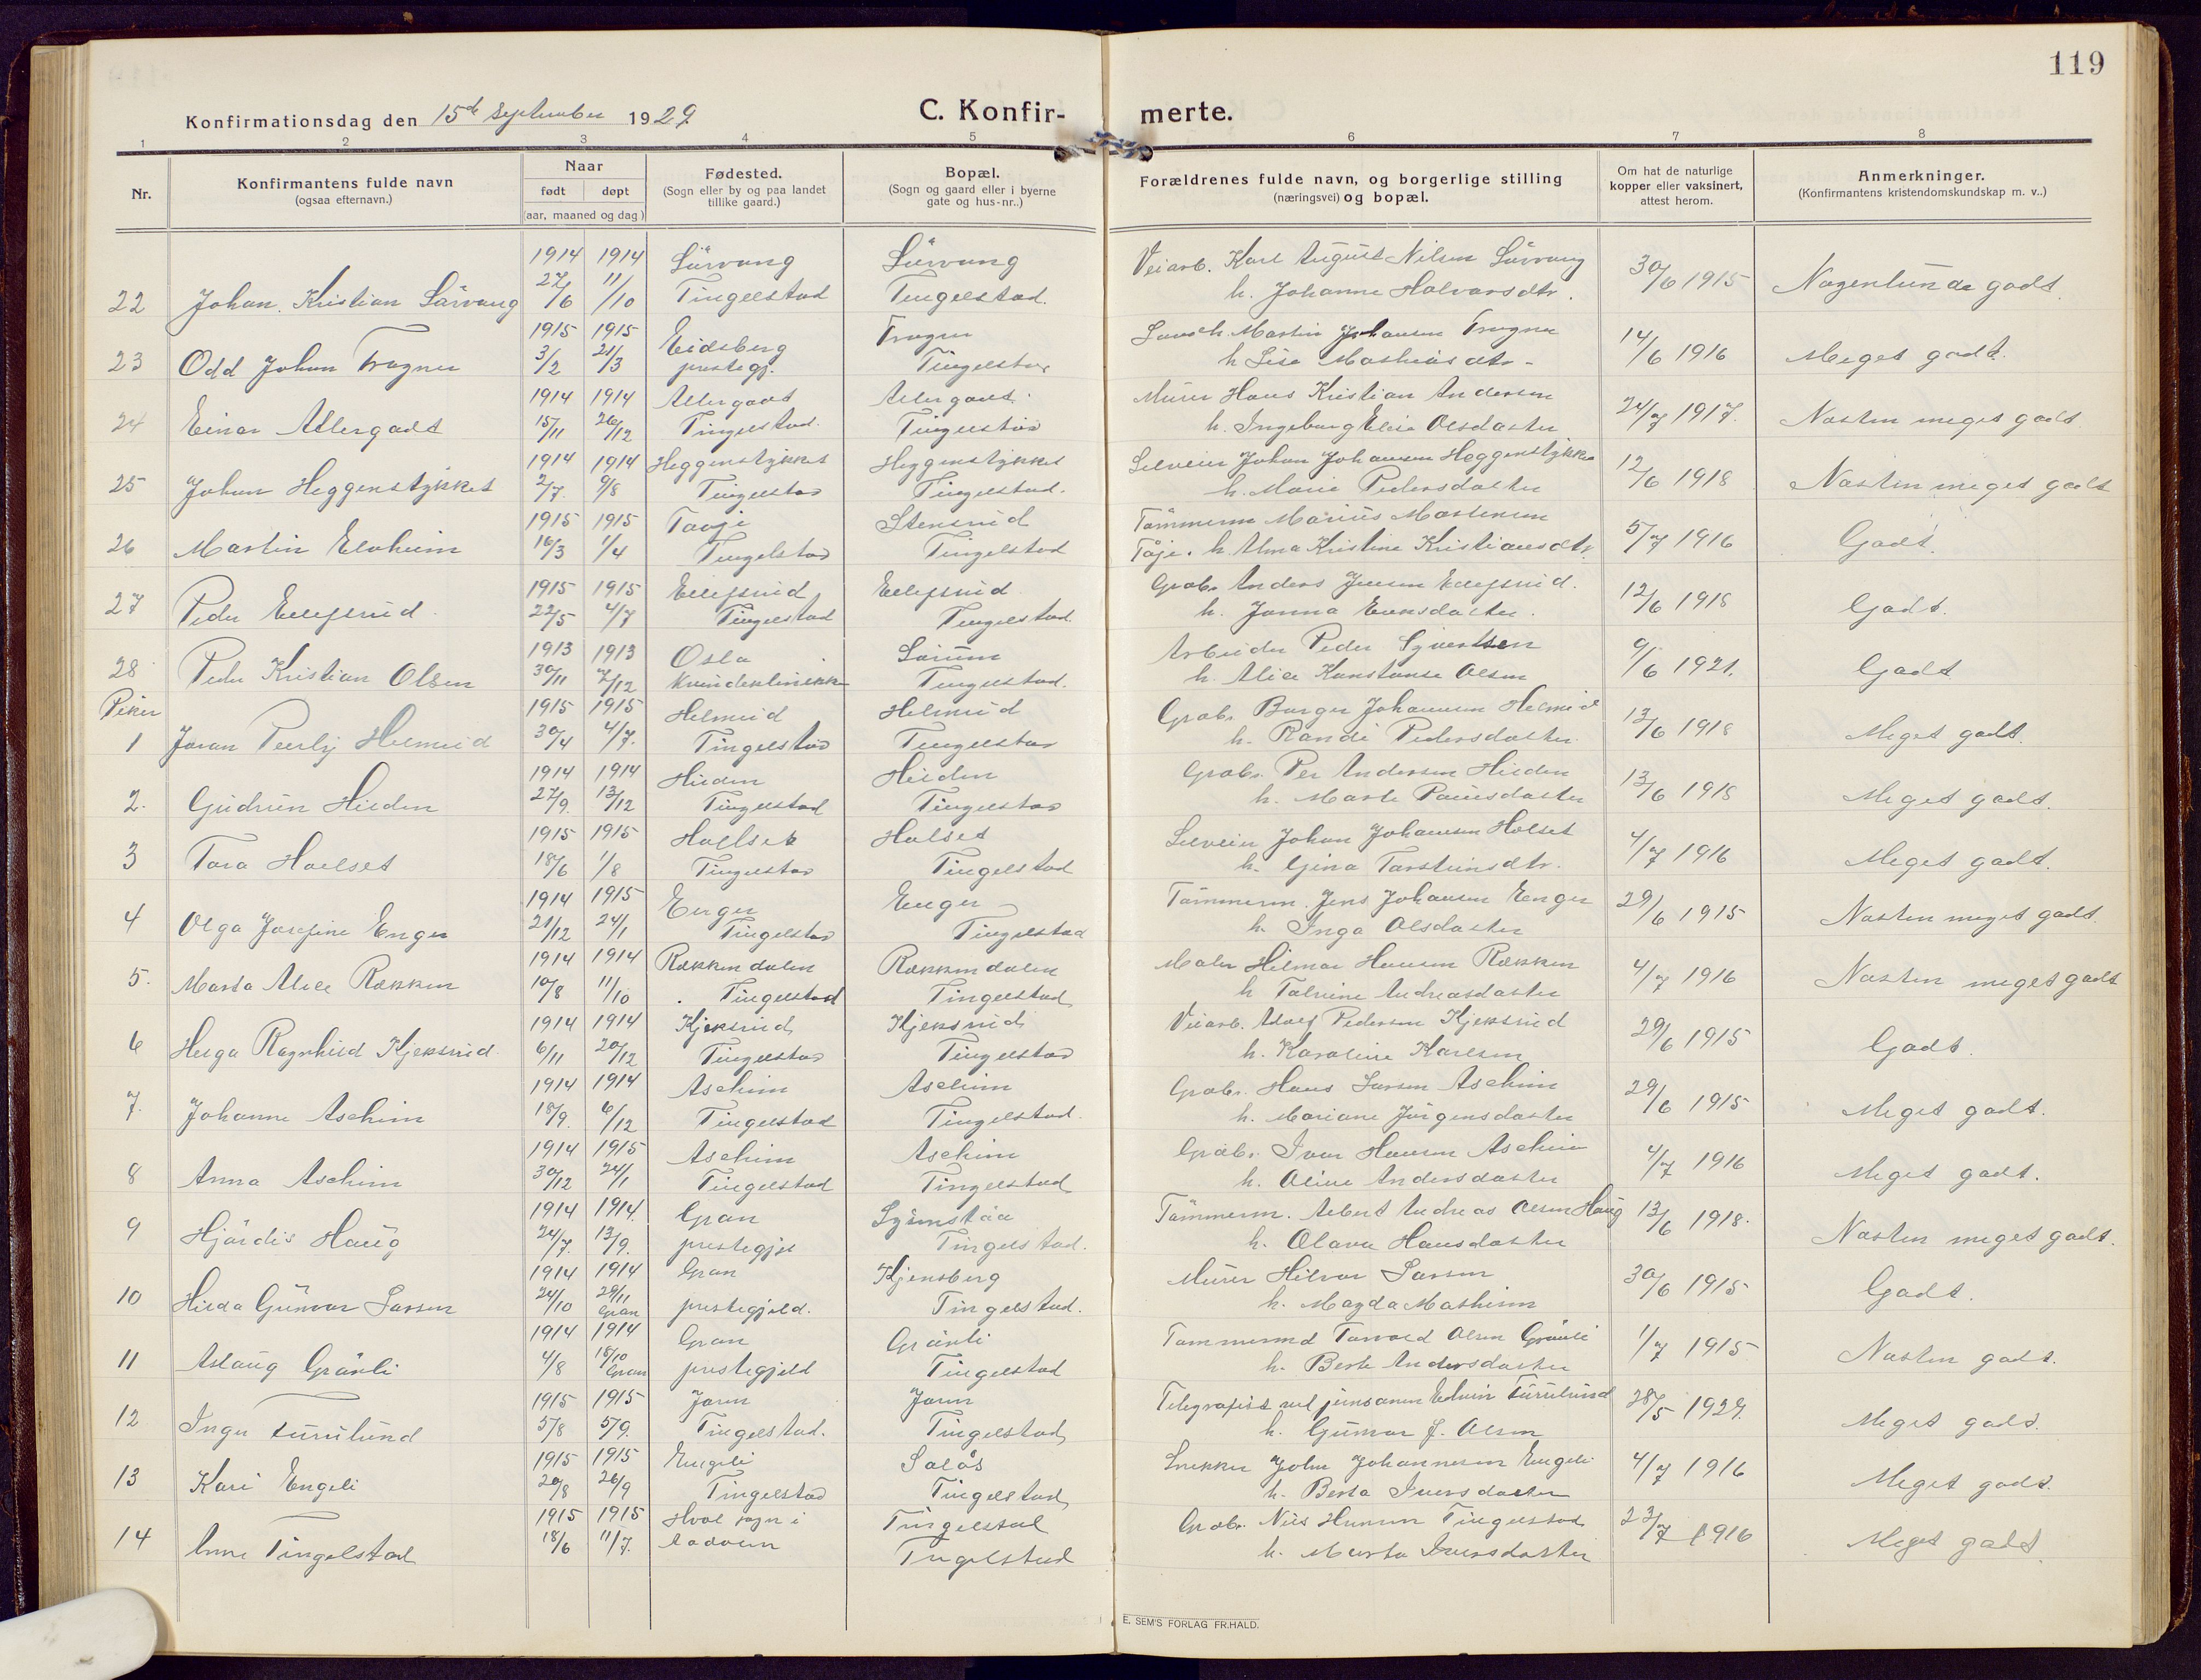 119
Konfirmationsdag den 15de September 1929.
C. Konfir- merte.
1 2 3 4 5 6 7 8
Nr.
Konfirmantens fulde navn
(ogsaa efternavn.)
Naar
født døpt
(aar, maaned og dag)
Fødested.
(Sogn eller by og paa landet
tillike gaard.)
Bopæl.
(Sogn og gaard eller i byerne
gate og hus-nr..)
Forældrenes fulde navn, og borgerlige stilling
(næringsvei) og bopæl.
Om hat de naturlige
kopper eller vaksinert,
attest herom.
Anmerkninger.
(Konfirmantens kristendomskundskap m. v..)
1914 1914 Sørvang Sørvang Veiarb. Karl August Nilsen Sørvang
22 Johan Kristian Sørvang 27/6 11/10 Tingelstad Tingelstad. h. Johanne Halvorsdtr. 30/6 1915 Nogenlunde godt.
1915 1915 Eidsberg Trogner Martin Johansen Trogner
23 Odd Johan Trogner 3/2 21/3 prestegj. Tingelstad h Lise Mathiasdtr. 14/6 1916 Meget godt.
1914 1914 Allergodt Allergodt. Murer Hans Kristian Andersen
24 Einar Allergodt 15/11 26/12 Tingelstad. Tingelstad h. Ingeborg Elise Olsdatter 24/7 1917. Næsten meget godt
1914 1914 Heggenstykket Heggenstykket Selveier Johan Johansen Heggenstykket
25 Johan Heggenstykket 2/7. 9/8 Tingelstad Tingelstad. h. Marie Pedersdatter 12/6 1918 Næsten meget godt
1915 1915 Taaje Stensrud Tømmerm Marius Martinsen
26 Martin Elvheim 16/3 1/4 Tingelstad Tingelstad Tøje. h. Alma Kristine Kristiansdtr. 5/7 1916 Godt.
1915 1915 Ellefsrud Ellefsrud Grdbr. Anders Jensen Ellefsrud.
27 Peder Ellefsrud. 22/5 4/7 Tingelstad Tingelstad h. Janna Eriksdatter. 12/6 1918 Godt.
1913 1913 Oslo Sørum Arbeider Peder Syvertsen
28 Peder Kristian Olsen 30/11 7/12 Kvindeklinikk Tingelstad. h. Alice Konstanse Olsen 9/6 1921. Godt
Piker
1915 1915 Helmeid Helmeid Grdbr. Borger Johansen Helmeid
1 Joran Peerly Helmeid 30/4 4/7. Tingelstad Tingelstad h. Randi Pedersdatter 13/6 1918 Meget godt.
1914 1914 Hilden Hilden Grdbr. Per Andersen Hilden
2. Gudrun Hilden 27/9. 13/12 Tingelstad Tingelstad h. Marte Paulsdatter 13/6 1918 Meget godt.
1915 1915 Hollset Holset Selveier Johan Johansen Holset
3 Tora Holset 18/6 1/8 Tingelstad Tingelstad h. Gina Torsteinsdtr. 4/7 1916 Meget godt.
1914 1915 Enger Enger Tømmerm. Jens Johansen Enger
4 Olga Josefine Enger 21/12 24/1 Tingelstad Tingelstad h. Inga Olsdatter 29/6 1915 Næsten meget godt.
1914 1914 Rækkendalen Rækkendalen Maler Hilmar Hansen Rækken
5. Marta Alice Rækken 10/8 11/10 Tingelstad Tingelstad h Andreasdatter 4/7 1916 Næsten meget godt
1914 1914 Kjeksrud Kjeksrud Veiarb. Adolf Pedersen Kjeksrud
6 Helga Ragnhild Kjeksrud. 6/11 20/12 Tingelstad Tingelstad h. Karoline Karlsen 29/6 1915 Godt.
1914 1914 Aschim Aschim Grdbr. Hans Larsen Aschim
7. Johanne Aschim 18/9. 6/12 Tingelstad Tingelstad. h. Mariane Jørgensdatter 29/6 1915 Meget godt.
1914 1915 Aschim Aschim Grdbr. Iver Hansen Aschim
8 Anna Aschim 30/12 24/1 Tingelstad Tingelstad h. Oline Andersdatter 4/7 1916 Meget godt.
1914 1914. Gran Tømmerm. Albert Andreas Olsen Haug
9 Hjørdis Haug 24/7. 13/9. prestegjel Tingelstad. h. Olava Hansdatter 13/6 1918. Næsten meget godt.
1914 1914 Gran Kjensberg Murer Hilvar Larsen
10 Hilda Gunvor Larsen 24/10 29/11 Gran prestegjeld. Tingelstad. h. Magda Mathisen 30/6 1915 Godt.
1914 1914 Gran Grønli Tømmermd Torvald Olsen Grønli
11 Aslaug Grønli 4/8 18/10 Gran prestegjeld Tingelstad h. Berte Andersdatter 1/7 1915 Næsten godt.
1915 1915 Jaren Jaren Telegrafist ved jernbanen Edvin Furulund
12 Inger Furulund 5/8 5/9. Tingelstad. Tingelstad h. Gunvor J. Olsen 28/5 1929. Meget godt.
1915 1915 Engeli Solås Snekker John Johannesen Engeli
13 Kari Engeli 20/8 26/9 Tingelstad Tingelstad h. Berta Iversdatter 4/7 1916 Meget godt.
1915 1915 Hval sogn i Tingelstad Grdbr. Nils Hansen Tingelstad
14 Anne Tingelstad 18/6 11/7. Aadalen Tingelstad h. Marta Iversdatter 23/7 1916 Meget godt.
E. SEM'S FORLAG FR.HALD.